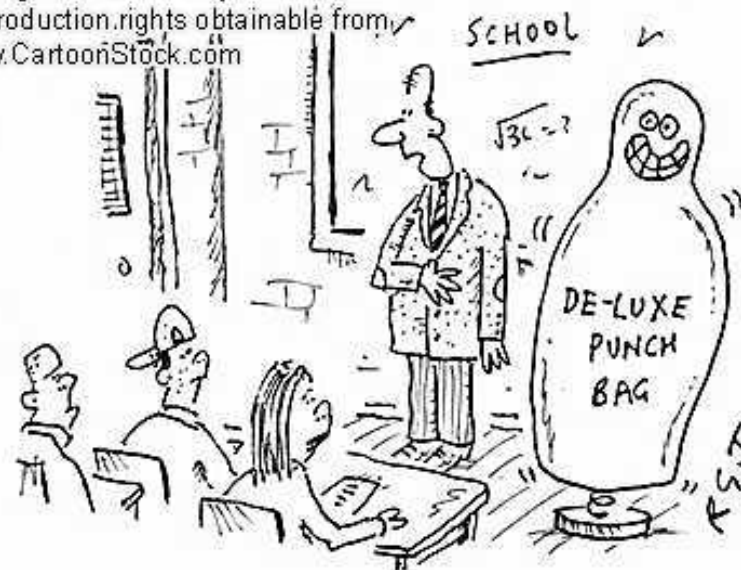 roduction rights obtainable from
v.CartoonStock.com
SCHOOL
√36 = ?
DE-LUXE
PUNCH
BAG